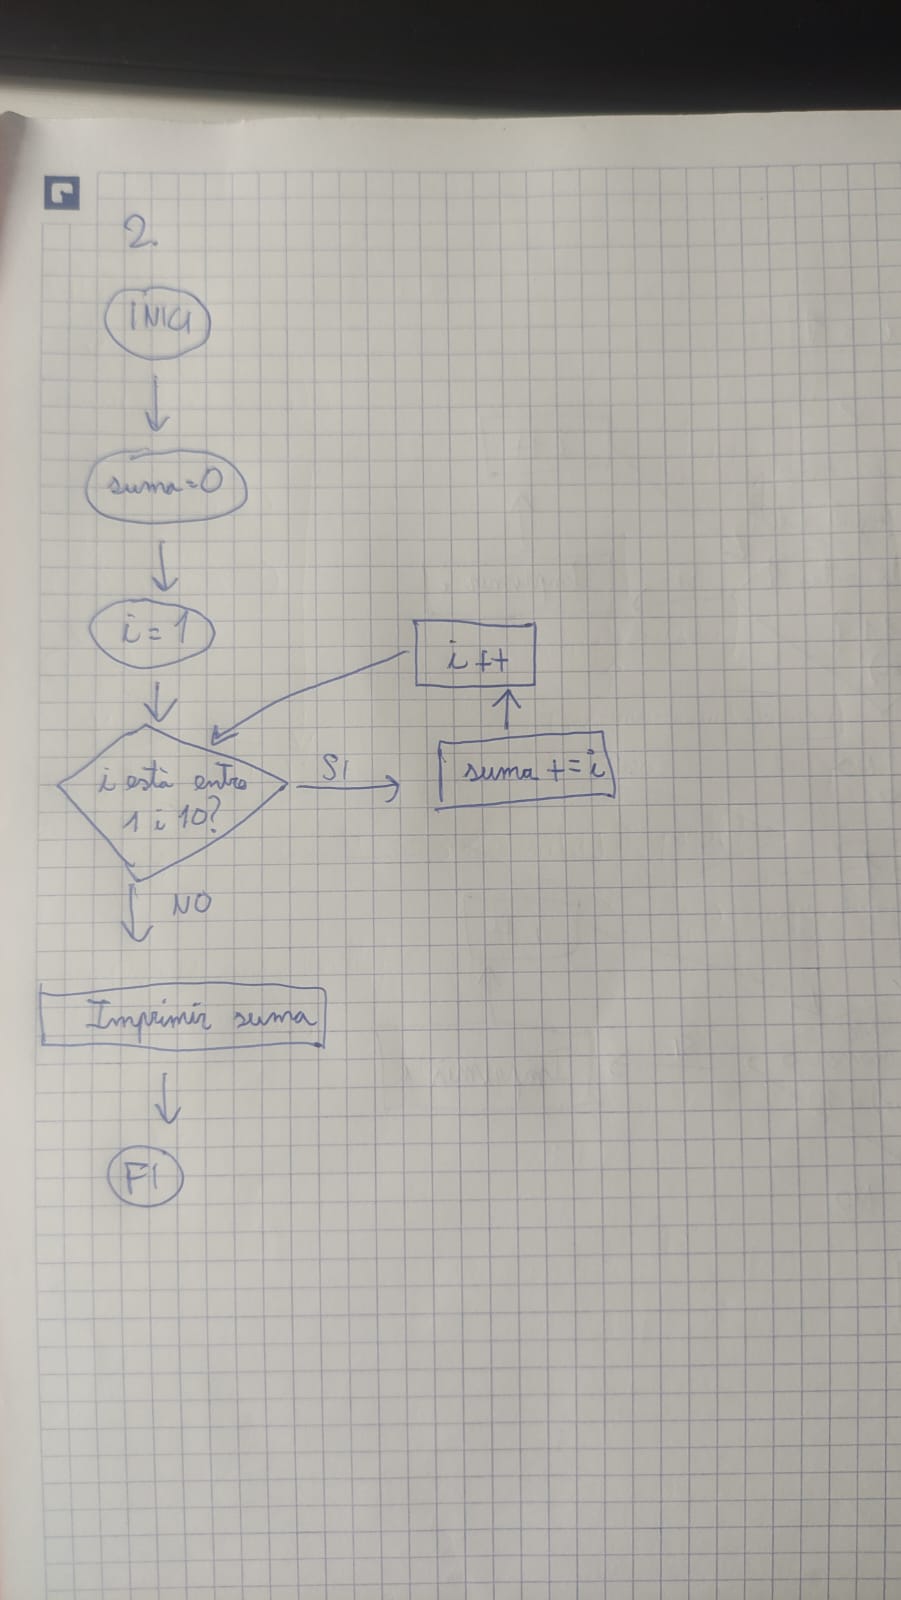 2.
INICI
suma=0
i=1
i++
i està entre
1 i 10?
SI
suma += i
NO
Imprimir suma
FI